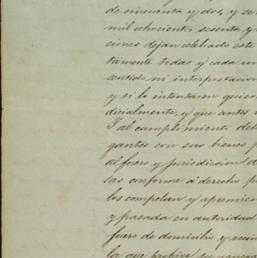 de cincuenta y dos, y se
mil ochocientos sesenta y
ciones dejan celebrado este
tamente todas y cada un
sentido, ni interpretacion
y si lo intentaren quieren
dicialmente, y que antes
Y al cumplimiento de lo
gantes con sus bienes p
al fuero y jurisdiccion d
sas conforme á derecho p
los competan y apremien
y pasada en autoridad
fuero de domicilio y
la que prohive su general